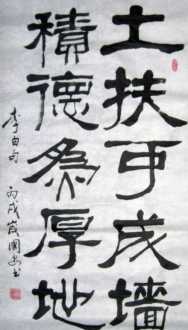 土扶可成墙
積德為厚地
李白句 丙戌歲國